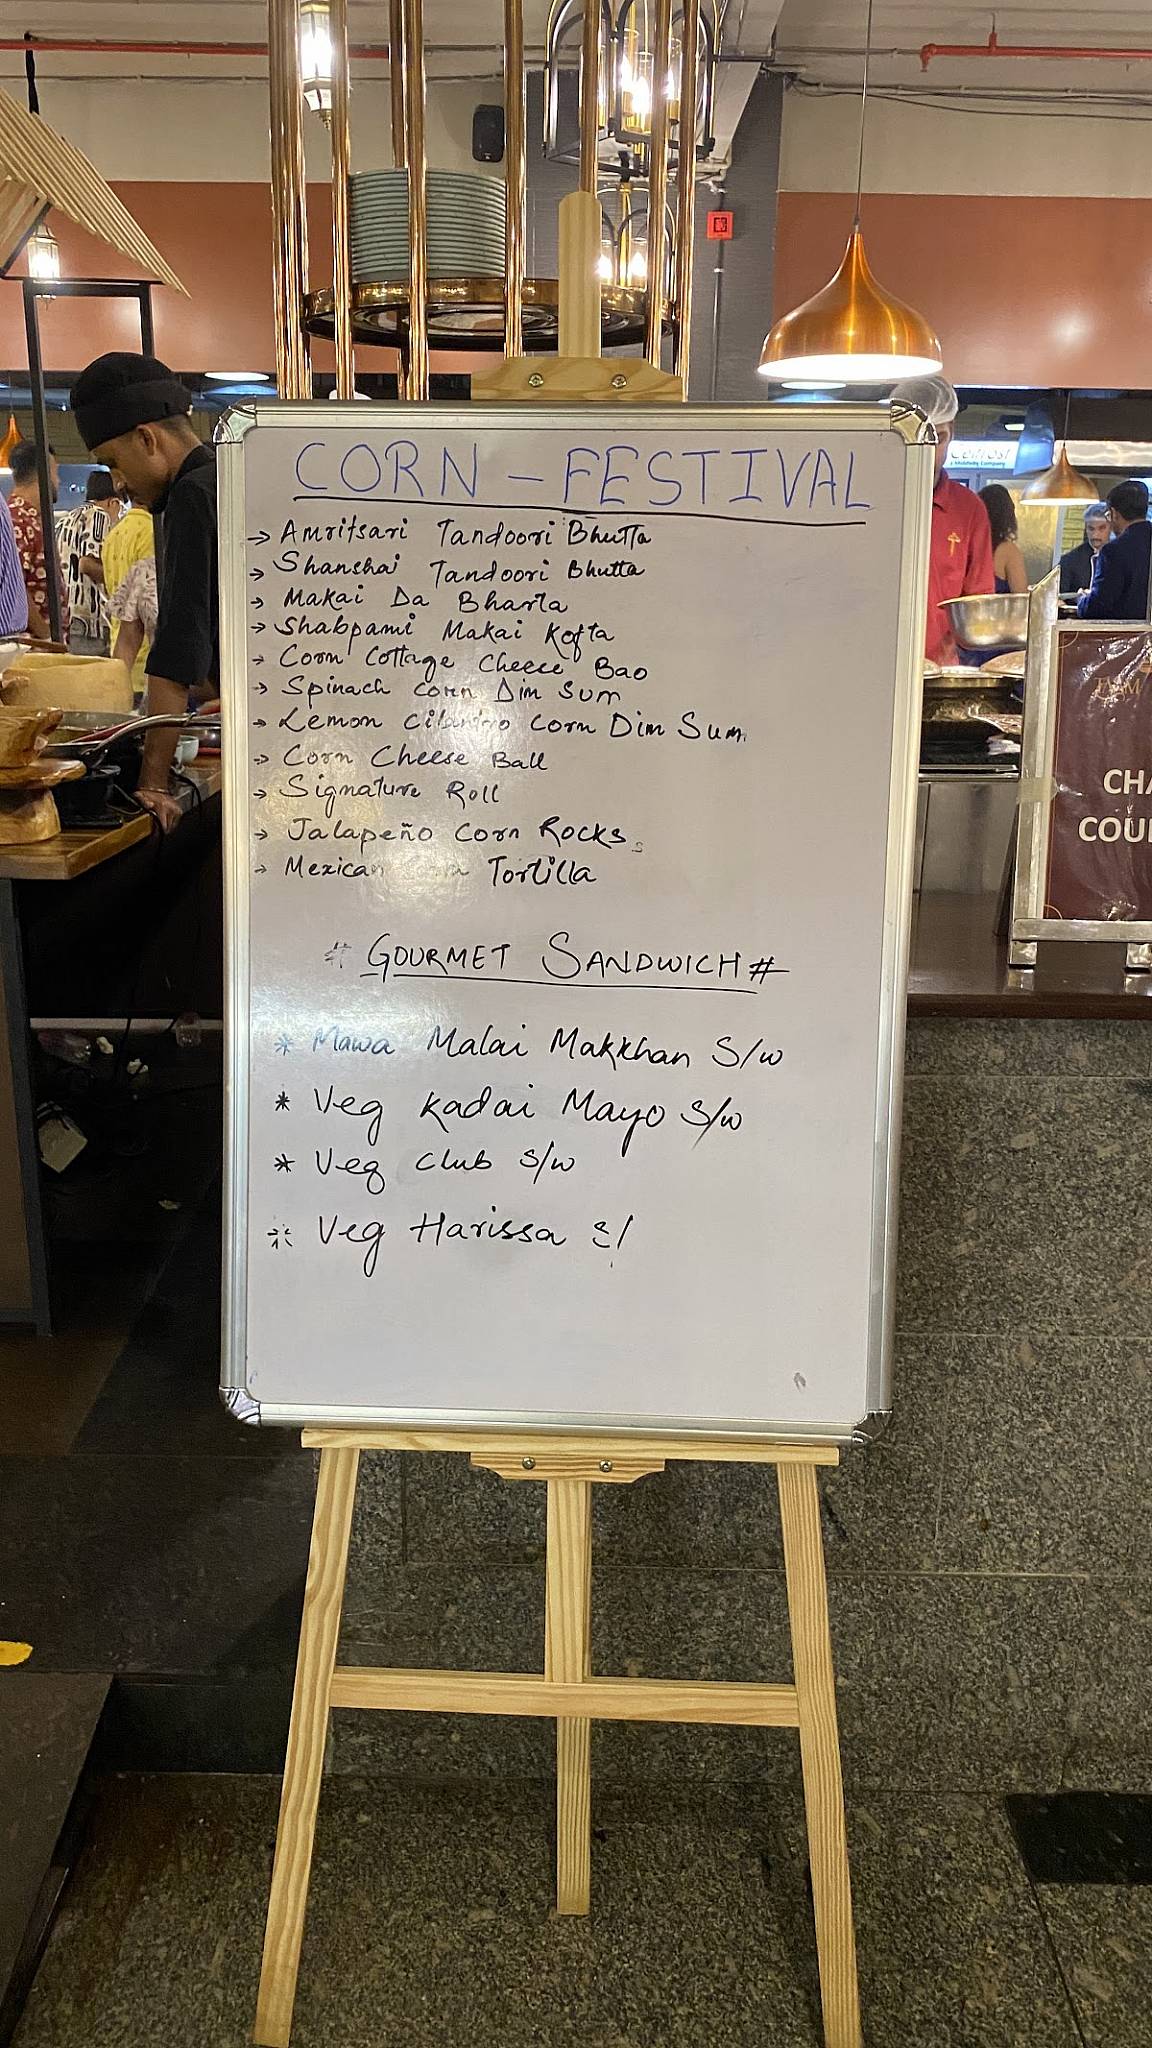 CORN - FESTIVAL
→ Amritsari Tandoori Bhutta
→ Shanshai Tandoori Bhutta
→ Makai Da Bharta
→ Shabpami Makai Kofta
→ Corn Cottage Cheese Bao
→ Spinach corn Dim Sum
→ Lemon Cilantro Corn Dim Sum
→ Corn Cheese Ball
→ Signature Roll
→ Jalapeño Corn Rocks
→ Mexican Corn Tortilla
# GOURMET SANDWICH #
* Mawa Malai Makkhan S/w
* Veg Kadai Mayo S/w
* Veg Club S/w
* Veg Harissa S/
CHA
COU